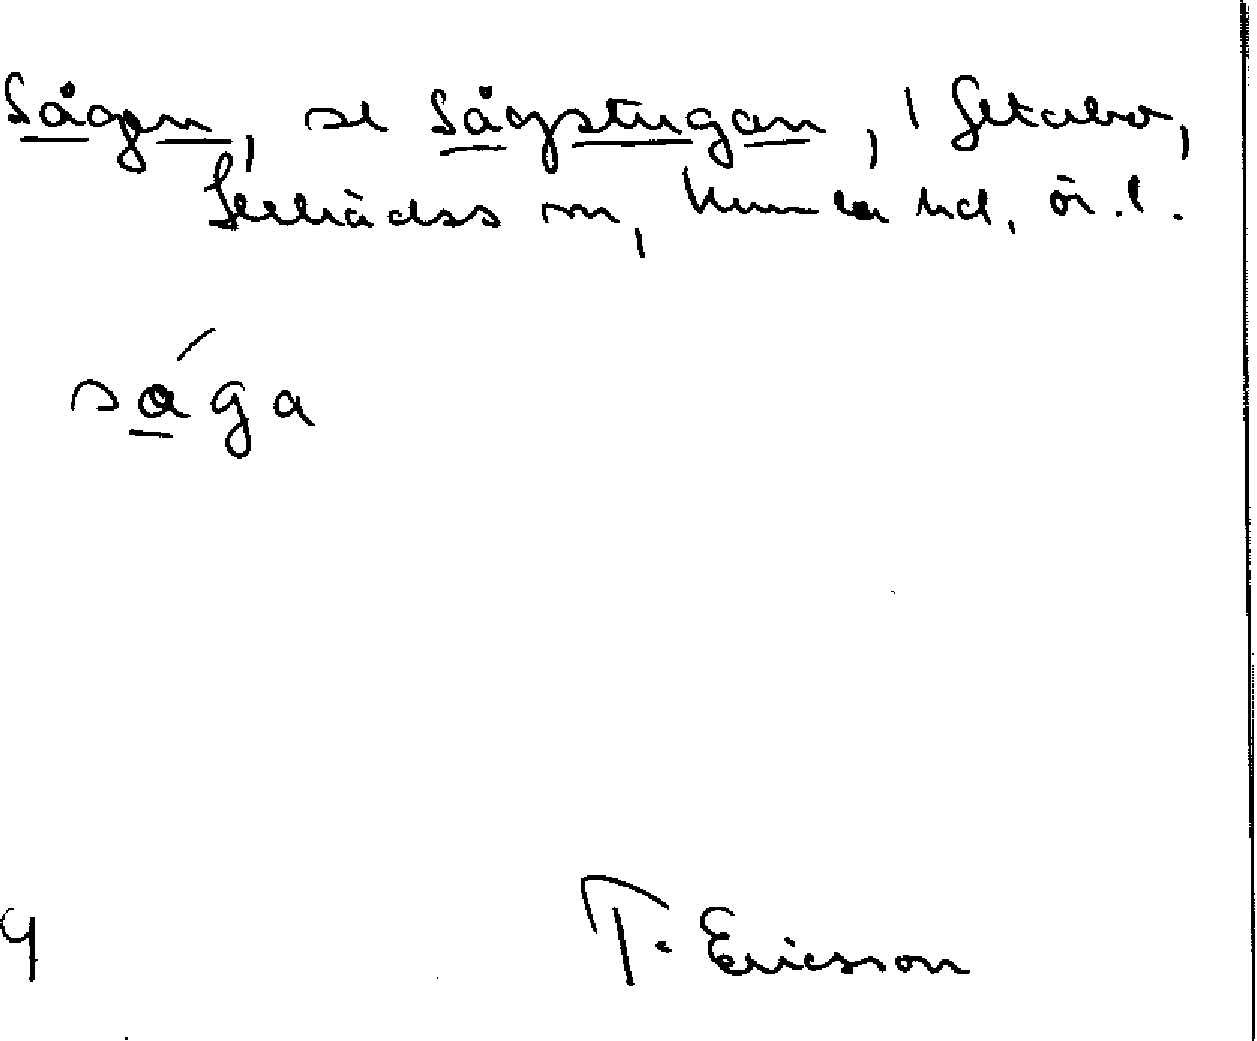 Sågen, se Sågstugan, i Getabo,
Lerbäcks sn, Kumla hd, Ör. l.
sága
9
T. Ericsson